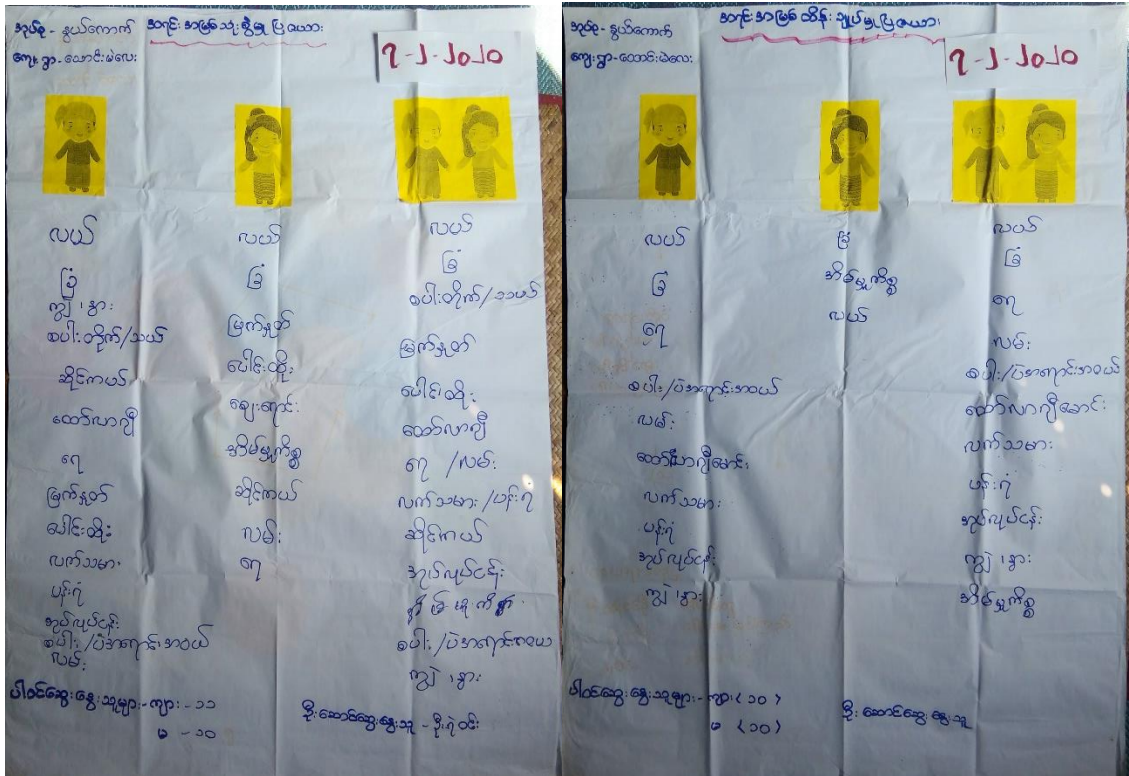 အုပ်စု - နွယ်ကောက်
အရင်းအမြစ်သုံးစွဲမှုပြဇယား
ကျေးရွာ - ထောင်းမဲလေး
၇-၂-၂၀၂၀
လယ်
ခြံ
ကျွဲ၊နွား
စပါးတိုက်/သယ်
ဆိုင်ကယ်
ထော်လာဂျီ
ရေ
မြက်နှုတ်
ပေါင်းထိုး
လက်သမား
ပန်းရံ
အုပ်လုပ်ငန်း
စပါး/ပဲအရောင်းအဝယ်
လမ်း
လယ်
ခြံ
မြက်နှုတ်
ပေါင်းထိုး
ဈေးရောင်း
အိမ်မှုကိစ္စ
ဆိုင်ကယ်
လမ်း
ရေ
လယ်
ခြံ
စပါးတိုက်/သယ်
မြက်နှုတ်
ပေါင်းထိုး
ထော်လာဂျီ
ရေ/လမ်း
လက်သမား/ပန်းရံ
ဆိုင်ကယ်
အုပ်လုပ်ငန်း
အိမ်မှုကိစ္စ
စပါး/ပဲအရောင်းအဝယ်
ကျွဲ၊နွား
ပါဝင်ဆွေးနွေးသူများ - ကျား - ၁၁
မ - ၁၀
ဦးဆောင်ဆွေးနွေးသူ - ဦးရဲဝင်း
အုပ်စု - နွယ်ကောက်
အရင်းအမြစ်ထိန်းချုပ်မှုပြဇယား
ကျေးရွာ - ထောင်းမဲလေး
၇-၂-၂၀၂၀
လယ်
ခြံ
ရေ
စပါး/ပဲအရောင်းအဝယ်
လမ်း
ထော်လာဂျီမောင်း
လက်သမား
ပန်းရံ
အုပ်လုပ်ငန်း
ကျွဲ၊နွား
ခြံ
အိမ်မှုကိစ္စ
လယ်
လယ်
ခြံ
ရေ
လမ်း
စပါး/ပဲအရောင်းအဝယ်
ထော်လာဂျီမောင်း
လက်သမား
ပန်းရံ
အုပ်လုပ်ငန်း
ကျွဲ၊နွား
အိမ်မှုကိစ္စ
ပါဝင်ဆွေးနွေးသူများ - ကျား (၁၀)
မ (၁၀)
ဦးဆောင်ဆွေးနွေးသူ